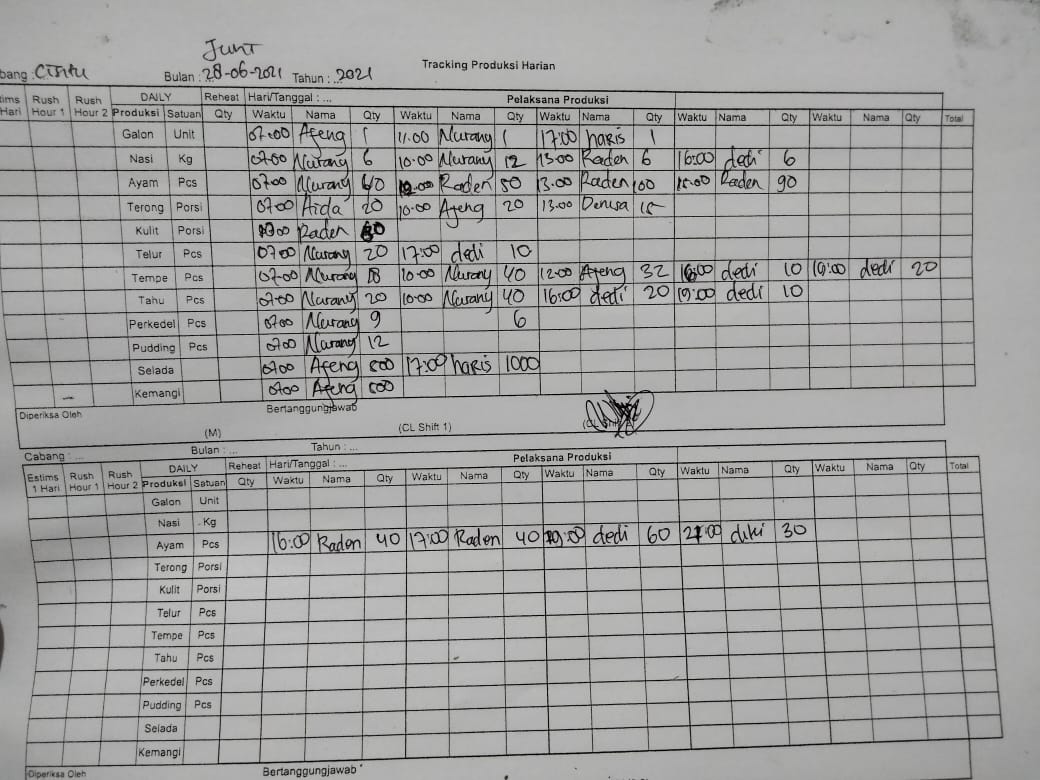 Juni
bang : Cisitu Bulan : 28-06-2021 Tahun : 2021 Tracking Produksi Harian
tims Rush Rush DAILY Reheat Hari/Tanggal : ... Pelaksana Produksi
Hari Hour 1 Hour 2 Produksi Satuan Qty Waktu Nama Qty Waktu Nama Qty Waktu Nama Qty Waktu Nama Qty Waktu Nama Qty Total
Galon Unit 07.00 Ajeng 1 11.00 Nurany 1 17:00 haris 1
Nasi Kg 0700 Nurany 6 10.00 Nurany 12 13.00 Raden 6 16:00 dedi 6
Ayam Pcs 0700 Nurany 40 Raden 50 13.00 Raden 100 Raden 90
Terong Porsi 0700 Aida 20 10.00 Ajeng 20 13.00 Denisa 15
Kulit Porsi Raden
Telur Pcs 0700 Nurany 20 17:00 dedi 10
Tempe Pcs 07.00 Nurany 18 10.00 Nurany 40 12.00 Ajeng 32 16:00 dedi 10 19:00 dedi 20
Tahu Pcs 0700 Nurany 20 10.00 Nurany 40 16:00 dedi 20 19:00 dedi 10
Perkedel Pcs 0700 Nurany 9 6
Pudding Pcs 0700 Nurany 12
Selada 0700 Ajeng 500 17:00 haris 1000
Kemangi 0700 Ajeng 500
Diperiksa Oleh Bertanggungjawab
(M) (CL Shift 1)
Cabang : ... Bulan : ... Tahun : ...
Estims Rush Rush DAILY Reheat Hari/Tanggal : ... Pelaksana Produksi
1 Hari Hour 1 Hour 2 Produksi Satuan Qty Waktu Nama Qty Waktu Nama Qty Waktu Nama Qty Waktu Nama Qty Waktu Nama Qty Total
Galon Unit
Nasi Kg
Ayam Pcs 16:00 Raden 40 17:00 Raden 40 19:00 dedi 60 21:00 diki 30
Terong Porsi
Kulit Porsi
Telur Pcs
Tempe Pcs
Tahu Pcs
Perkedel Pcs
Pudding Pcs
Selada
Kemangi
Diperiksa Oleh Bertanggungjawab